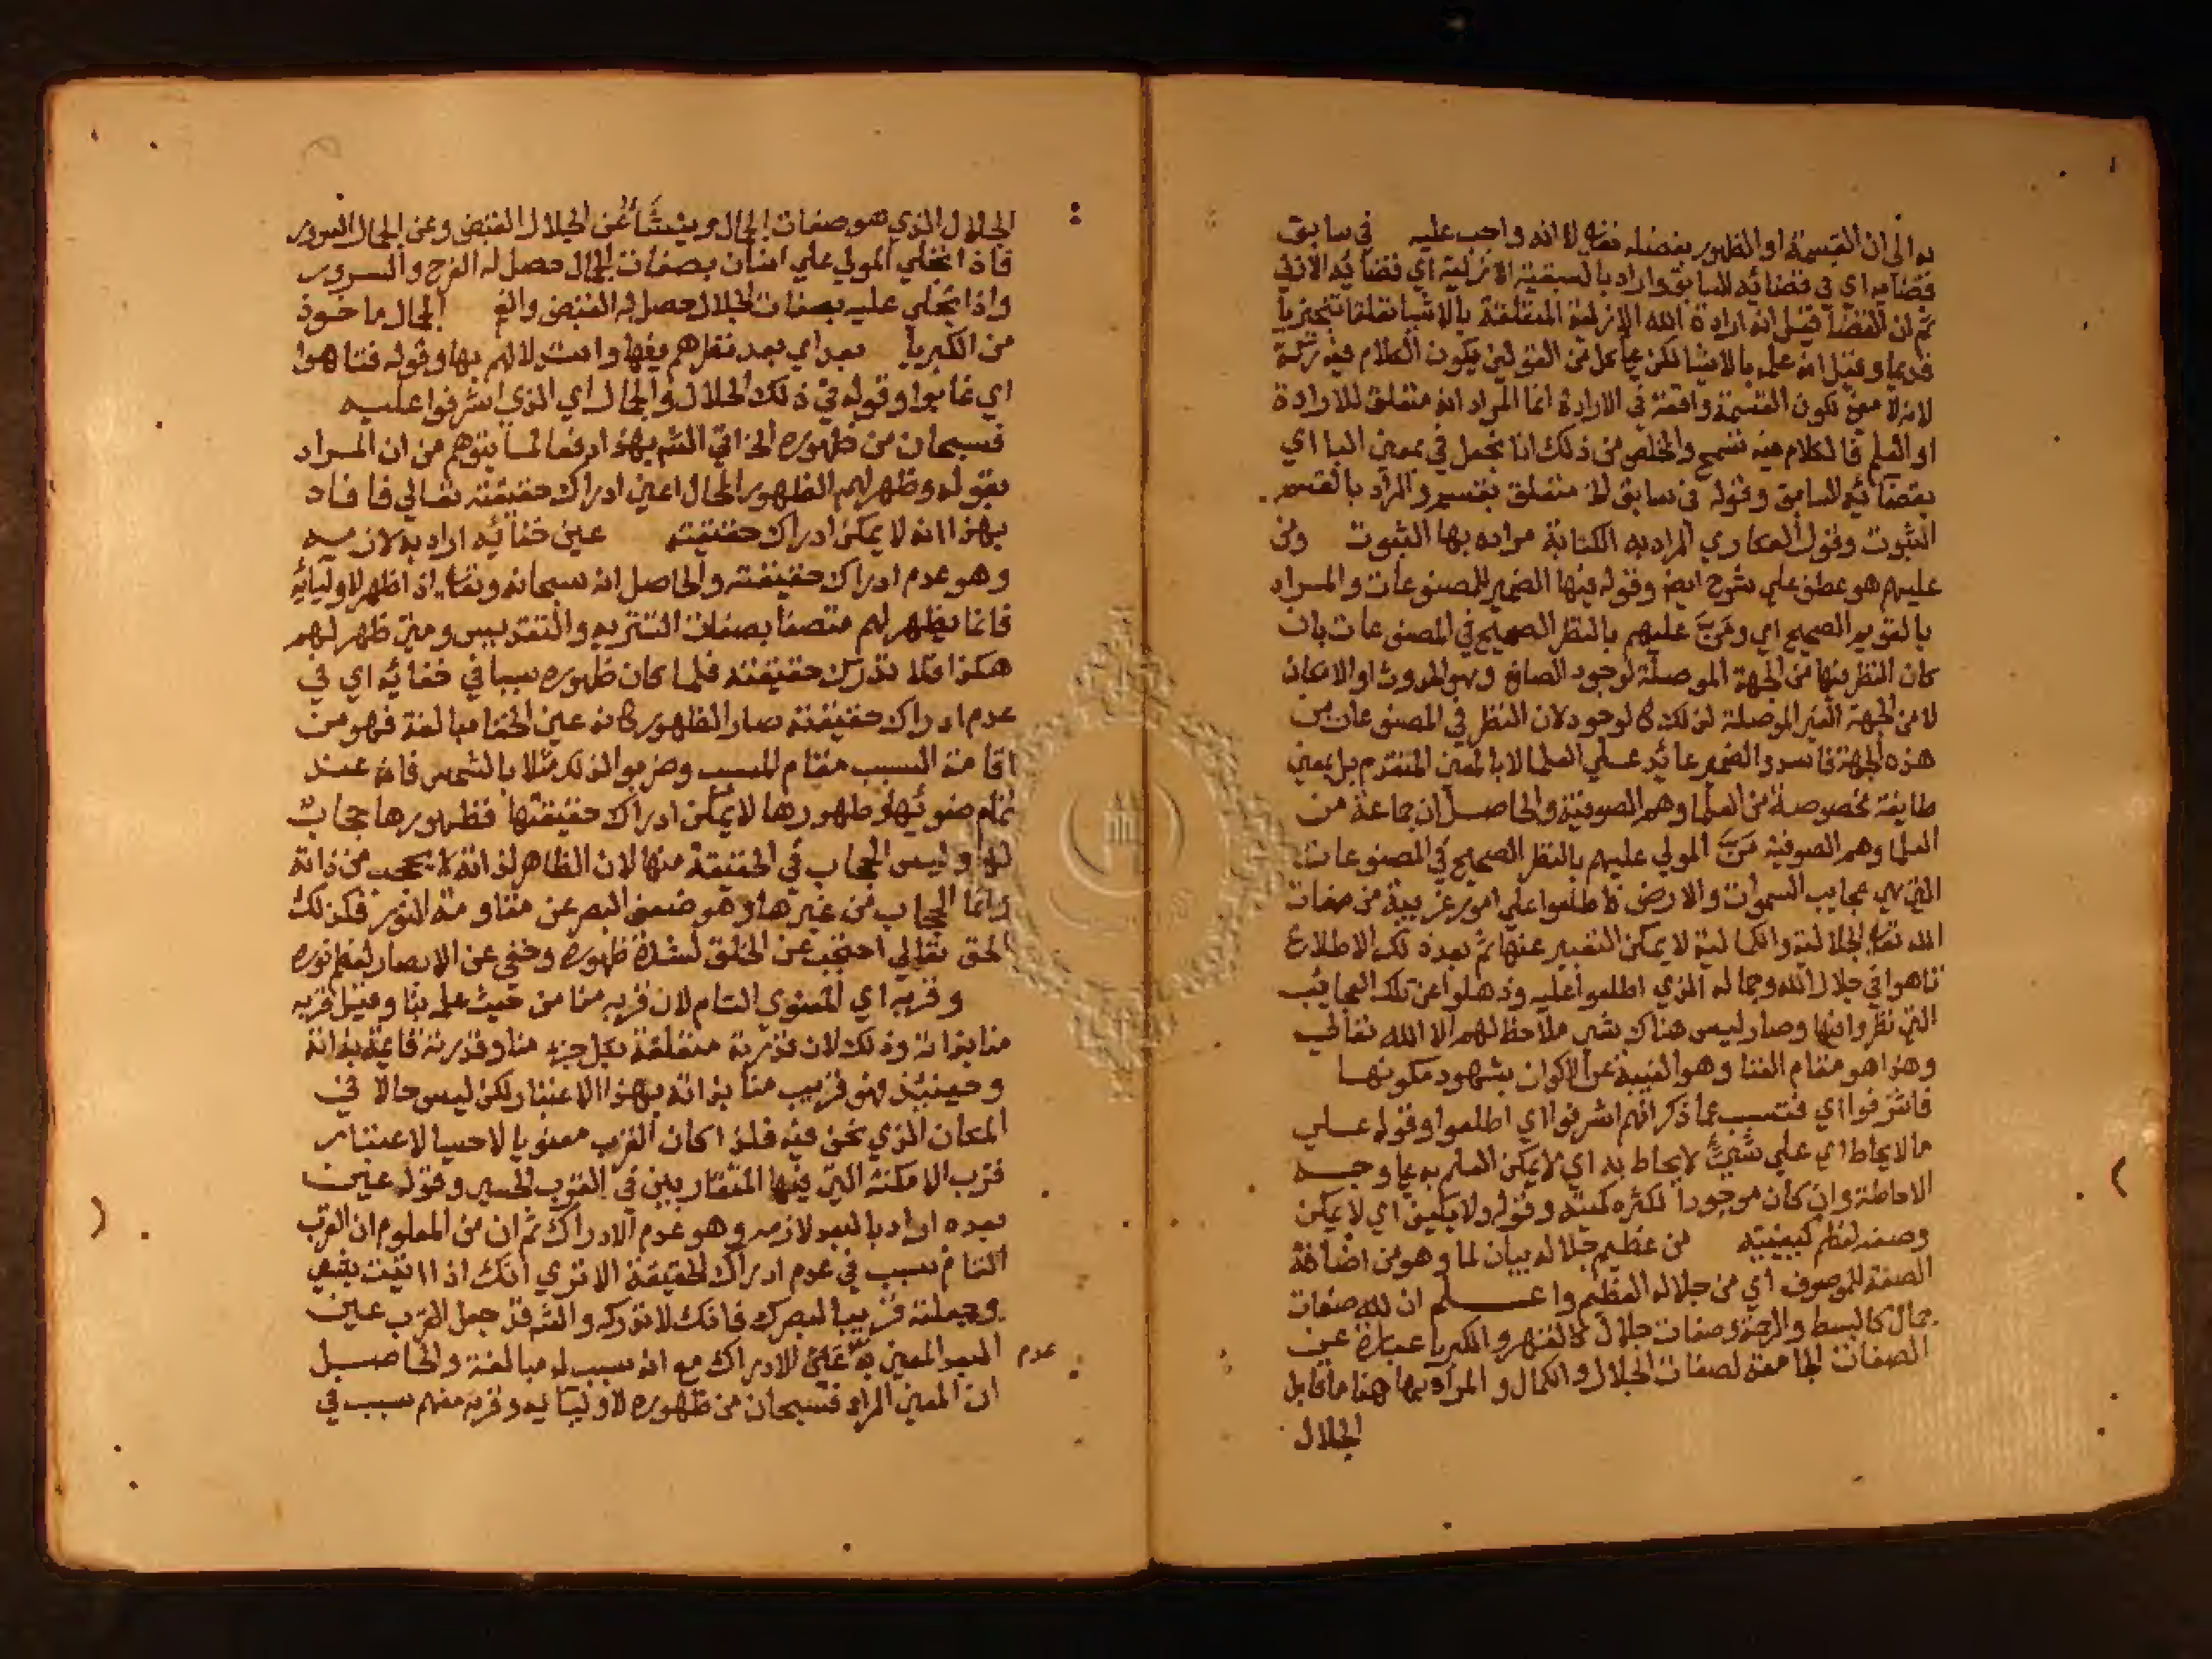 به الى ان القسمة او الظهور بفضله تعالى لا انه واجب عليه في سابق
قضايه اي في قضائه السابق واراد بالسبقية الازلية اي قضائه الازلي
ثم ان القضا قيل انه ارادة الله الازلية المتعلقة بالاشيا تعلقا تنجيزيا
قديما وقيل انه علمه بالاشيا لكن على كل من القولين يكون الكلام فيه
لانه لا معنى لكون القسمة واقعة في الارادة انما المراد انه متعلق للارادة
او العلم فالكلام فيه تسمح والمخلص من ذلك انا نجعل في بمعنى البا اي
بقضائه السابق وقوله في سابق الخ متعلق بقسم والمراد بالقسم
الثبوت وقول العكاري المراد به الكتابة مراده بها الثبوت ومن
عليهم هو عطف على شرح ايضا وقوله فيها الضمير للمصنوعات والمراد
بالقويم الصحيح اي ومَنَّ عليهم بالنظر الصحيح في المصنوعات بان
كان النظر فيها من الجهة الموصلة لوجود الصانع وهو الحدوث او الامكان
لا من الجهة الغير الموصلة لذلك كالوجود لان النظر في المصنوعات من
هذه الجهة فاسد والضمير عائد على العلما لا بالمعنى المتقدم بل بمعنى
طايفة مخصوصة من العلما وهم الصوفية والحاصل ان جماعة من
العلما وهم الصوفية مَنَّ المولي عليهم بالنظر الصحيح في المصنوعات
التي هي عجايب السموات والارض فاطلعوا على امور غريبة من صفات
الله تعالى الجلالية والكمالية لا يمكن التعبير عنها ثم بعد ذلك الاطلاع
تاهوا في جلال الله وجماله الذي اطلعوا عليه وذهلوا عن تلك العجائب
التي نظروا فيها وصار ليس هناك شي ملاحظ لهم الا الله تعالى
وهذا هو مقام الفنا وهو الغيبة عن الاكوان بشهود مكونها
فاشرفوا اي فتسبب عما ذكر انهم اشرفوا اي اطلعوا وقوله على
ما لا يحاط اي على شيئ لا يحاط به اي لا يمكن العلم به على وجه
الاحاطة وان كان موجودا لكثرة كميته وقوله ولا يكيف اي لا يمكن
وصفه لعظم كيفيته من عظيم جلاله بيان لما وهو من اضافة
الصفة للموصوف اي من جلاله العظيم واعلم ان لله صفات
جمال كالبسط والرحمة وصفات جلال كالقهر والكبريا عبارة عن
الصفات الجامعة لصفات الجلال والكمال والمراد بها هنا ما قابل
الجلال
الجلال الذي هو صفات الجمال وينشَأ عن الجلال القبض وعن الجمال السرور
فاذا تجلي المولي علي انسان بصفات الجمال حصل له الفرح والسرور
واذا تجلي عليه بصفات الجلال حصل له القبض والغم الجمال ماخوذ
من الكبريا بعد اي بعد نظرهم فيها واستدلالهم بها وقوله فتاهوا
اي غابوا وقوله في ذلك الجلال والجمال اي الذي اشرفوا عليه
فسبحان من ظهوره الخ اتي الشم بهذا دفعا لما يتوهم من ان المراد
بقوله وظهر لهم الظهور الجمال اعني ادراك حقيقته تعالي فافاد
بهذا انه لا يمكن ادراك حقيقته عين خفائه اراد به لازمه
وهو عدم ادراك حقيقته والحاصل انه سبحانه وتعالى اذا ظهر لاوليائه
فانما يظهر لهم متصفا بصفات التنزيه والتقديس ومتى ظهر لهم
هكذا فلا تدرك حقيقته فلما كان ظهوره سببا في خفائه اي في
عدم ادراك حقيقته صار الظهور كانه عين الخفا مبالغة فهو من
اقامة السبب مقام المسبب وضربوا لذلك مثلا بالشمس فانه عند
تمام ضوئها وظهورها لا يمكن ادراك حقيقتها فظهورها حجاب
لها وليس الحجاب في الحقيقة منها لان الظاهر لذاته لا يحجب من ذاته
وانما الحجاب من غيرها وهو ضعف البصر عن مقاومة النور فكذلك
الحق تعالي احتجب عن الخلق لشدة ظهوره وخفي عن الابصار لعظم نوره
وقربه اي المعنوي التام لان قربه منا من حيث علمه بنا وقيل قربه
منا بذاته وذلك لان قدرته متعلقة بكل جزء منا وقدرته قائمة بذاته
وحينئذ فهو قريب منا بذاته بهذا الاعتبار لكن ليس حالا في
المكان الذي نحن فيه فلذا كان القرب معنويا لا حسيا لاعتبار
قرب الامكنة التي فيها المتقاربين في القرب الحسي وقوله عين
بعده اراد بالبعد لازمه وهو عدم الادراك ثم ان من المعلوم ان القرب
التام سبب في عدم ادراك الحقيقة الا تري انك اذا اتيت بشي
وجعلته قريبا لبصرك فانك لا تدركه والشم قد جعل القرب عين
البعد المعني به عن الادراك مع انه سبب له مبالغة والحاصل
عدم
ان المعني المراد فسبحان من ظهوره لاوليائه وقربه منهم سبب في